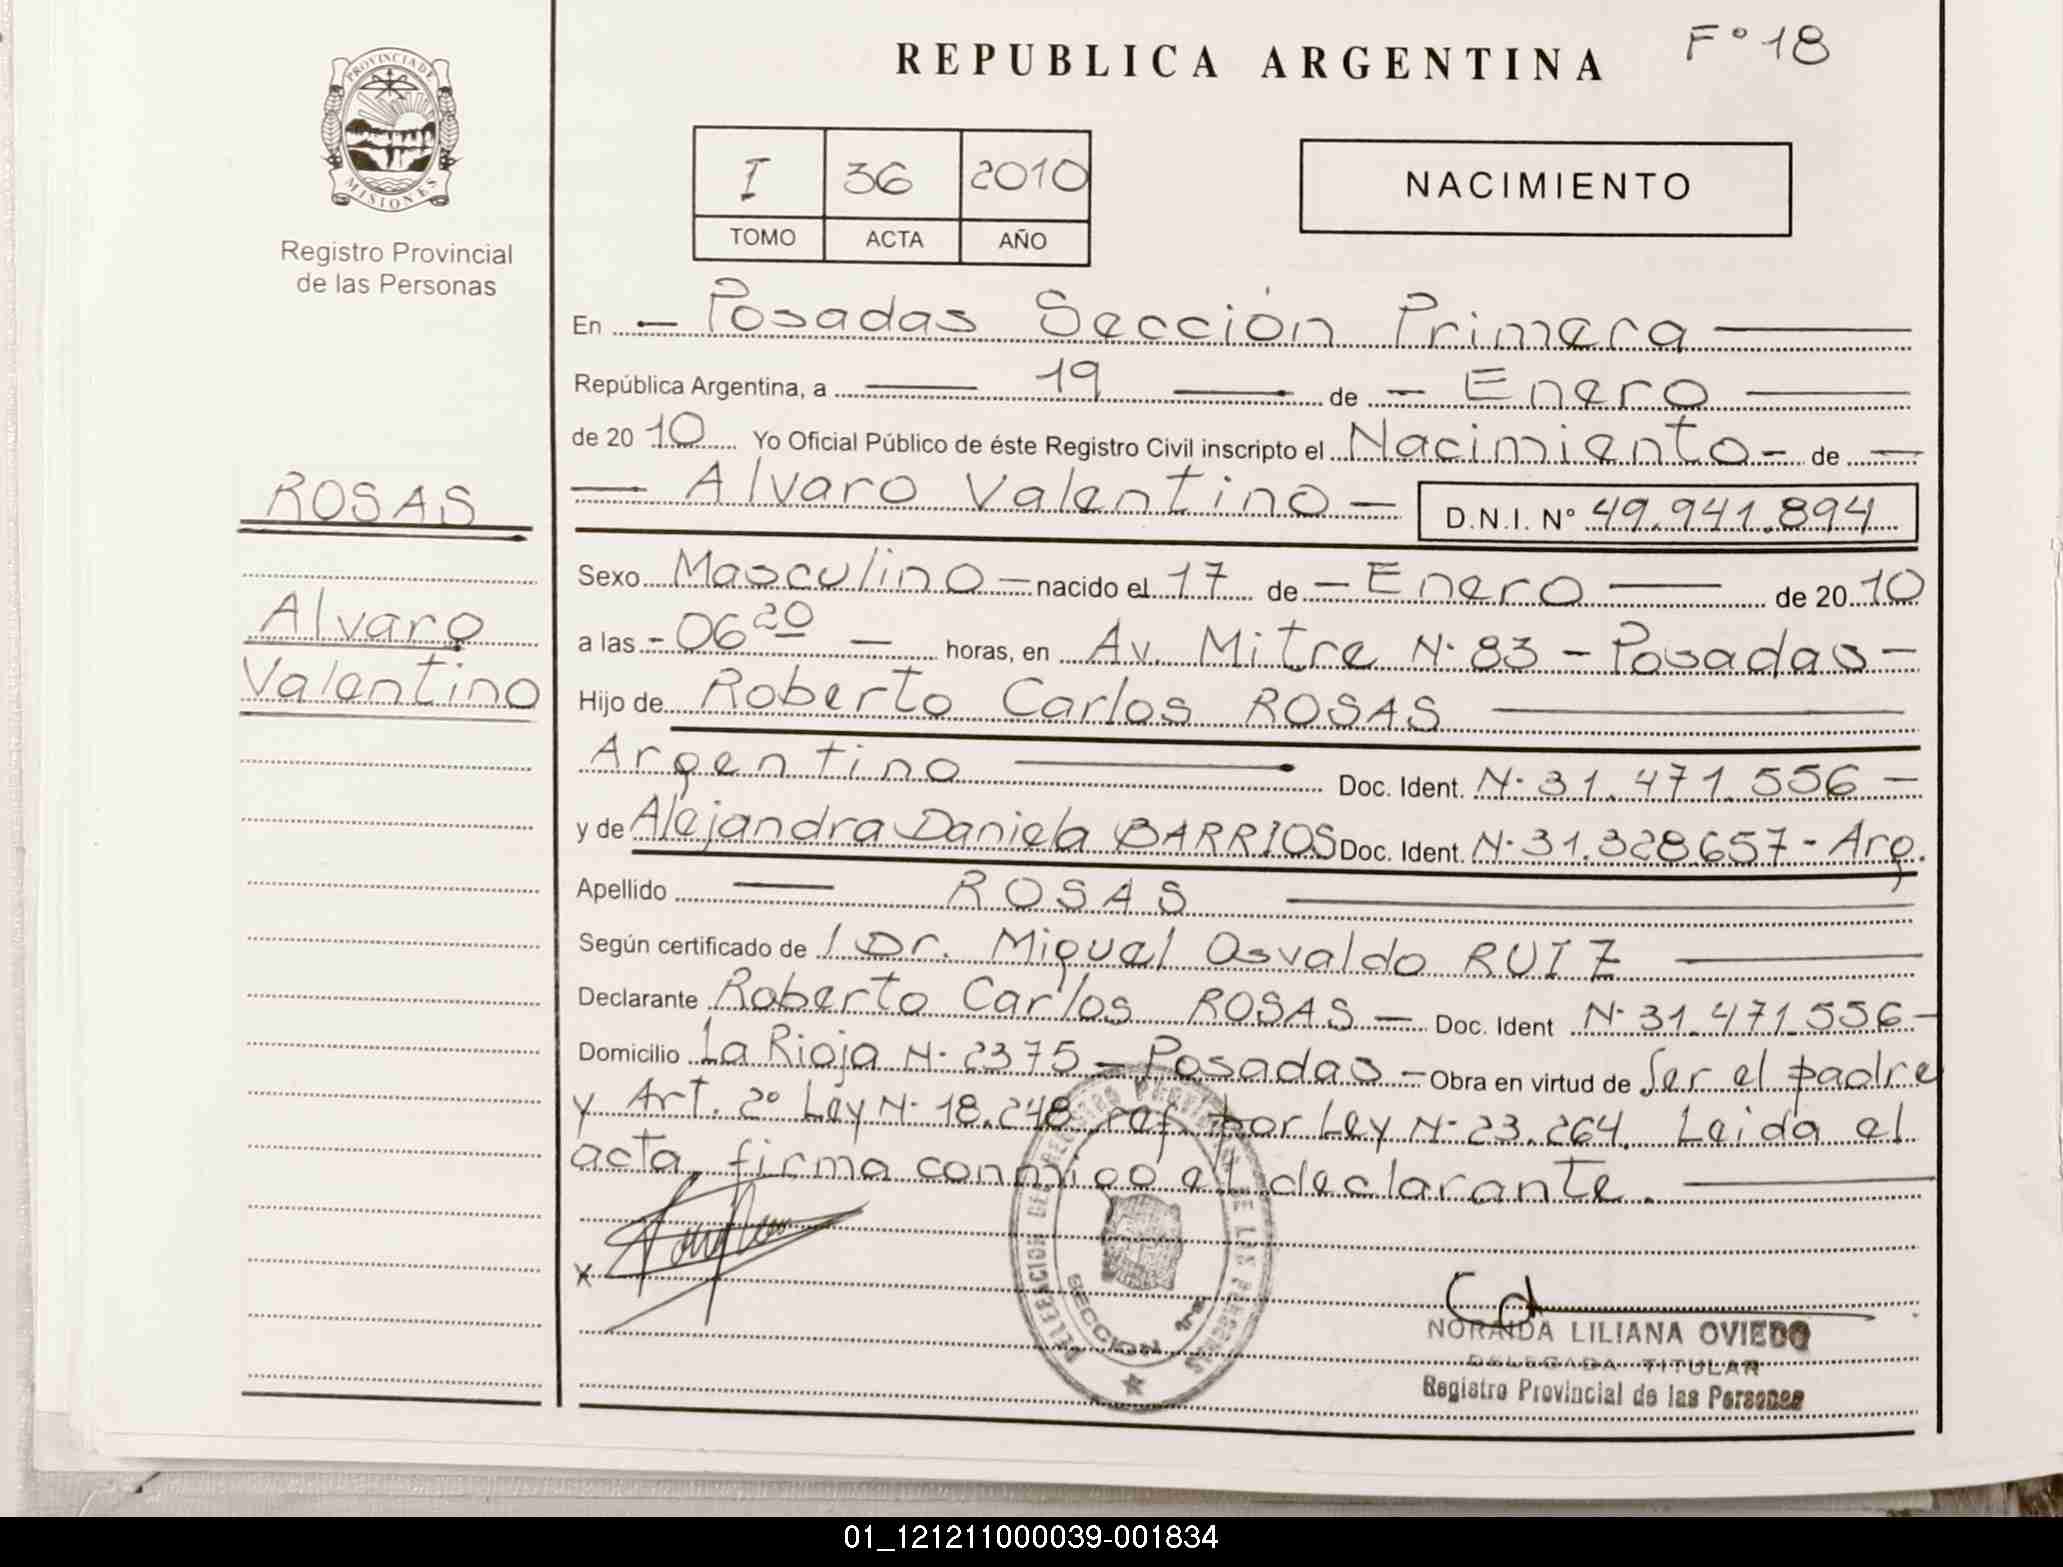 REPUBLICA ARGENTINA
Fº 18
PROVINCIA DE
MISIONES
Registro Provincial
de las Personas
I 36 2010
TOMO ACTA AÑO
NACIMIENTO
En - Posadas Sección Primera
República Argentina, a 19 de - Enero
de 2010 Yo Oficial Público de éste Registro Civil inscripto el Nacimiento - de -
- Alvaro Valentino - D.N.I. Nº 49.941.894
ROSAS
Alvaro
Valentino
Sexo Masculino - nacido el 17 de - Enero - de 2010
a las - 06 20 - horas, en Av. Mitre N· 83 - Posadas -
Hijo de Roberto Carlos ROSAS
Argentino Doc. Ident. N· 31.471.556 -
y de Alejandra Daniela BARRIOS Doc. Ident. N· 31.328657 - Arg.
Apellido - ROSAS
Según certificado de / Dr. Miguel Osvaldo RUIZ
Declarante Roberto Carlos ROSAS - Doc. Ident N· 31.471.556 -
Domicilio La Rioja N· 2375 - Posadas - Obra en virtud de Ser el padre
y Art. 2º Ley N· 18.248 ref. por Ley N· 23.264. Leida el
acta, firma conmigo el declarante.
x
DELEGACION DEL REGISTRO PROVINCIAL DE LAS PERSONAS
SECCION 1ra
NORAIDA LILIANA OVIEDO
DELEGADA TITULAR
Registro Provincial de las Personas
01_121211000039-001834